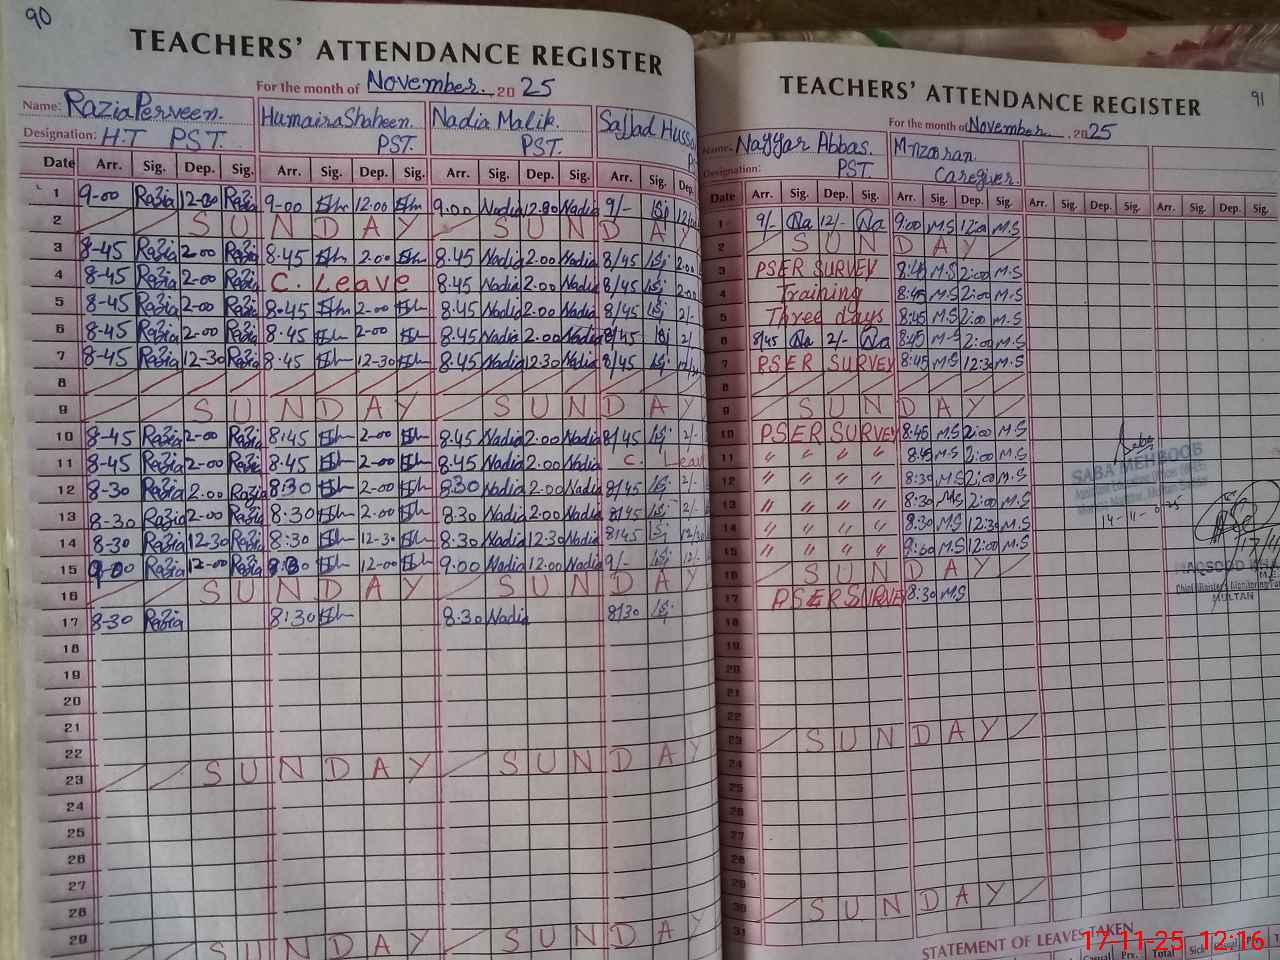 90
TEACHERS' ATTENDANCE REGISTER
For the month of November. 2025
Name: Razia Perveen. Humaira Shaheen. Nadia Malik. Sajjad
Designation: H.T PST. PST. PST.
Date Arr. Sig. Dep. Sig. Arr. Sig. Dep. Sig. Arr. Sig. Dep. Sig. Arr. Sig. Dep.
1 9-00 Razia 12-00 Razia 9-00 12.00 9.00 Nadia 12.00 Nadia 9/-
2 SUNDAY SUNDAY
3 8-45 Razia 2-00 Razia 8.45 2.00 8.45 Nadia 2.00 Nadia 8/45 2.00
4 8-45 Razia 2-00 Razia C. Leave 8.45 Nadia 2.00 Nadia 8/45 2.00
5 8-45 Razia 2-00 Razia 8-45 2-00 8.45 Nadia 2.00 Nadia 8/45 2/-
6 8-45 Razia 2-00 Razia 8-45 2-00 8.45 Nadia 2.00 Nadia 8/45 2/
7 8-45 Razia 12-30 Razia 8-45 12-30 8.45 Nadia 12.30 Nadia 8/45
8
9 SUNDAY SUNDAY
10 8-45 Razia 2-00 Razia 8:45 2-00 8.45 Nadia 2.00 Nadia 8/45 2/-
11 8-45 Razia 2-00 Razia 8.45 2-00 8.45 Nadia 2.00 Nadia C. Leav
12 8-30 Razia 2.00 Razia 8:30 2-00 8.30 Nadia 2.00 Nadia 8/45 2/-
13 8-30 Razia 2-00 Razia 8:30 2.00 8.30 Nadia 2.00 Nadia 8/45 2/-
14 8-30 Razia 12-30 Razia 8:30 12-30 8.30 Nadia 12.30 Nadia 8/45 12/30
15 9-00 Razia 12-00 Razia 12-00 9.00 Nadia 12.00 Nadia 9/- 12/-
16 SUNDAY SUNDAY
17 8-30 Razia 8:30 8.30 Nadia 8/30
18
19
20
21
22
23 SUNDAY SUNDAY
24
25
26
27
28
29
SUNDAY SUNDAY
91
TEACHERS' ATTENDANCE REGISTER
For the month of November 2025
Name: Abbas.
Designation: PST. Caregiver.
Date Arr. Sig. Dep. Sig. Arr. Sig. Dep. Sig. Arr. Sig. Dep. Sig. Arr. Sig. Dep. Sig.
1 9/- Na 12/- Na 9:00 M.S 12:00 M.S
2 SUNDAY
3 PSER SURVEY 8:45 M.S 2:00 M.S
4 Training 8:45 M.S 2:00 M.S
5 Three days 8:45 M.S 2:00 M.S
6 8/45 Na 2/- Na 8:45 M.S 2:00 M.S
7 PSER SURVEY 8:45 M.S 12:30 M.S
8
9 SUNDAY
10 PSER SURVEY 8:45 M.S 2:00 M.S
11 " " " " 8:45 M.S 2:00 M.S
12 " " " " 8:30 M.S 2:00 M.S
13 " " " " 8:30 M.S 2:00 M.S
14 " " " " 8:30 M.S 12:30 M.S
15 " " " " M.S 12:00 M.S
16 SUNDAY
17 PSER SURVEY 8:30 M.S
18
19
20
21
22
23 SUNDAY
24
25
26
27
28
29
30 SUNDAY
31
SABA MEHBOOB
14-11-2025
MAQSOOD
Chief Minister's Monitoring
MULTAN
STATEMENT OF LEAVES TAKEN
Casual Prv. Total Sick
17-11-25 12:16